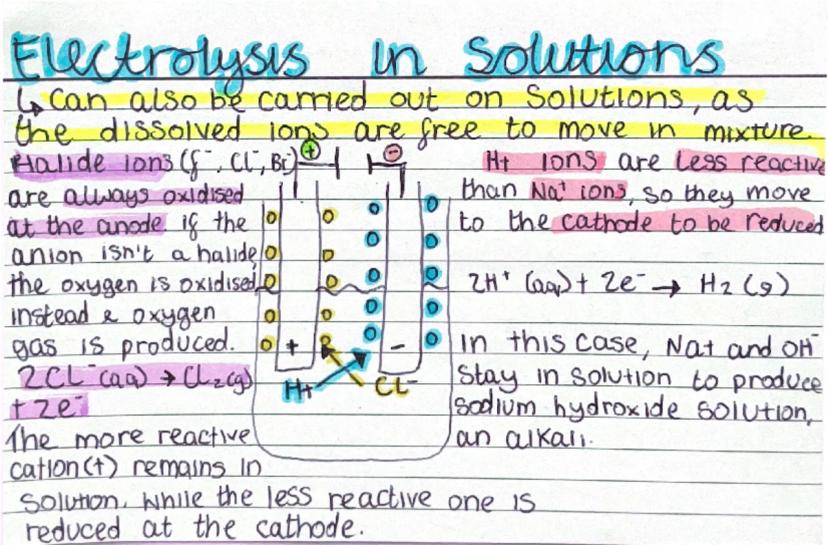 Electrolysis in Solutions
↳ Can also be carried out on Solutions, as
the dissolved ions are free to move in mixture.
Halide ions (f⁻, Cl⁻, Br)
are always oxidised
at the anode if the
anion isn't a halide,
the oxygen is oxidised
instead & oxygen
gas is produced.
2Cl⁻(aq) → Cl₂(g)
+ 2e⁻
The more reactive
cation(+) remains in
solution, while the less reactive one is
reduced at the cathode.
+
-
+
-
H+
Cl⁻
H+ ions are less reactive
than Na⁺ ions, so they move
to the cathode to be reduced
2H⁺ (aq) + 2e⁻ → H₂ (g)
In this case, Na+ and OH⁻
stay in solution to produce
sodium hydroxide solution,
an alkali.